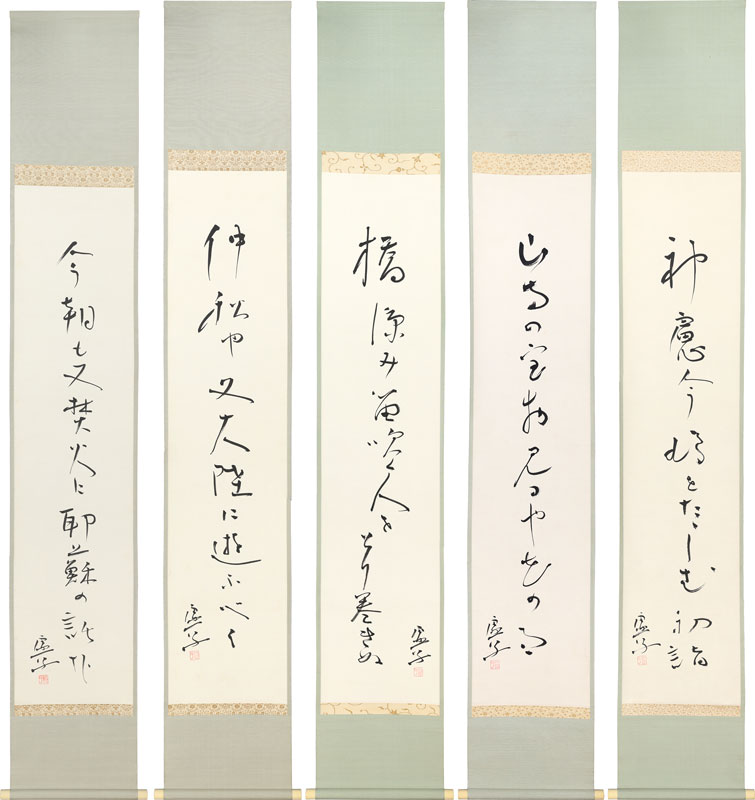 神慮今鳩をたゝしむ初詣
虚子
山寺の宝物見るや花の雨
虚子
橋涼み笛吹く人をとり巻きぬ
虚子
仲秋や又大陸に遊ふへく
虚子
今朝も又焚火に耶蘇の話
虚子